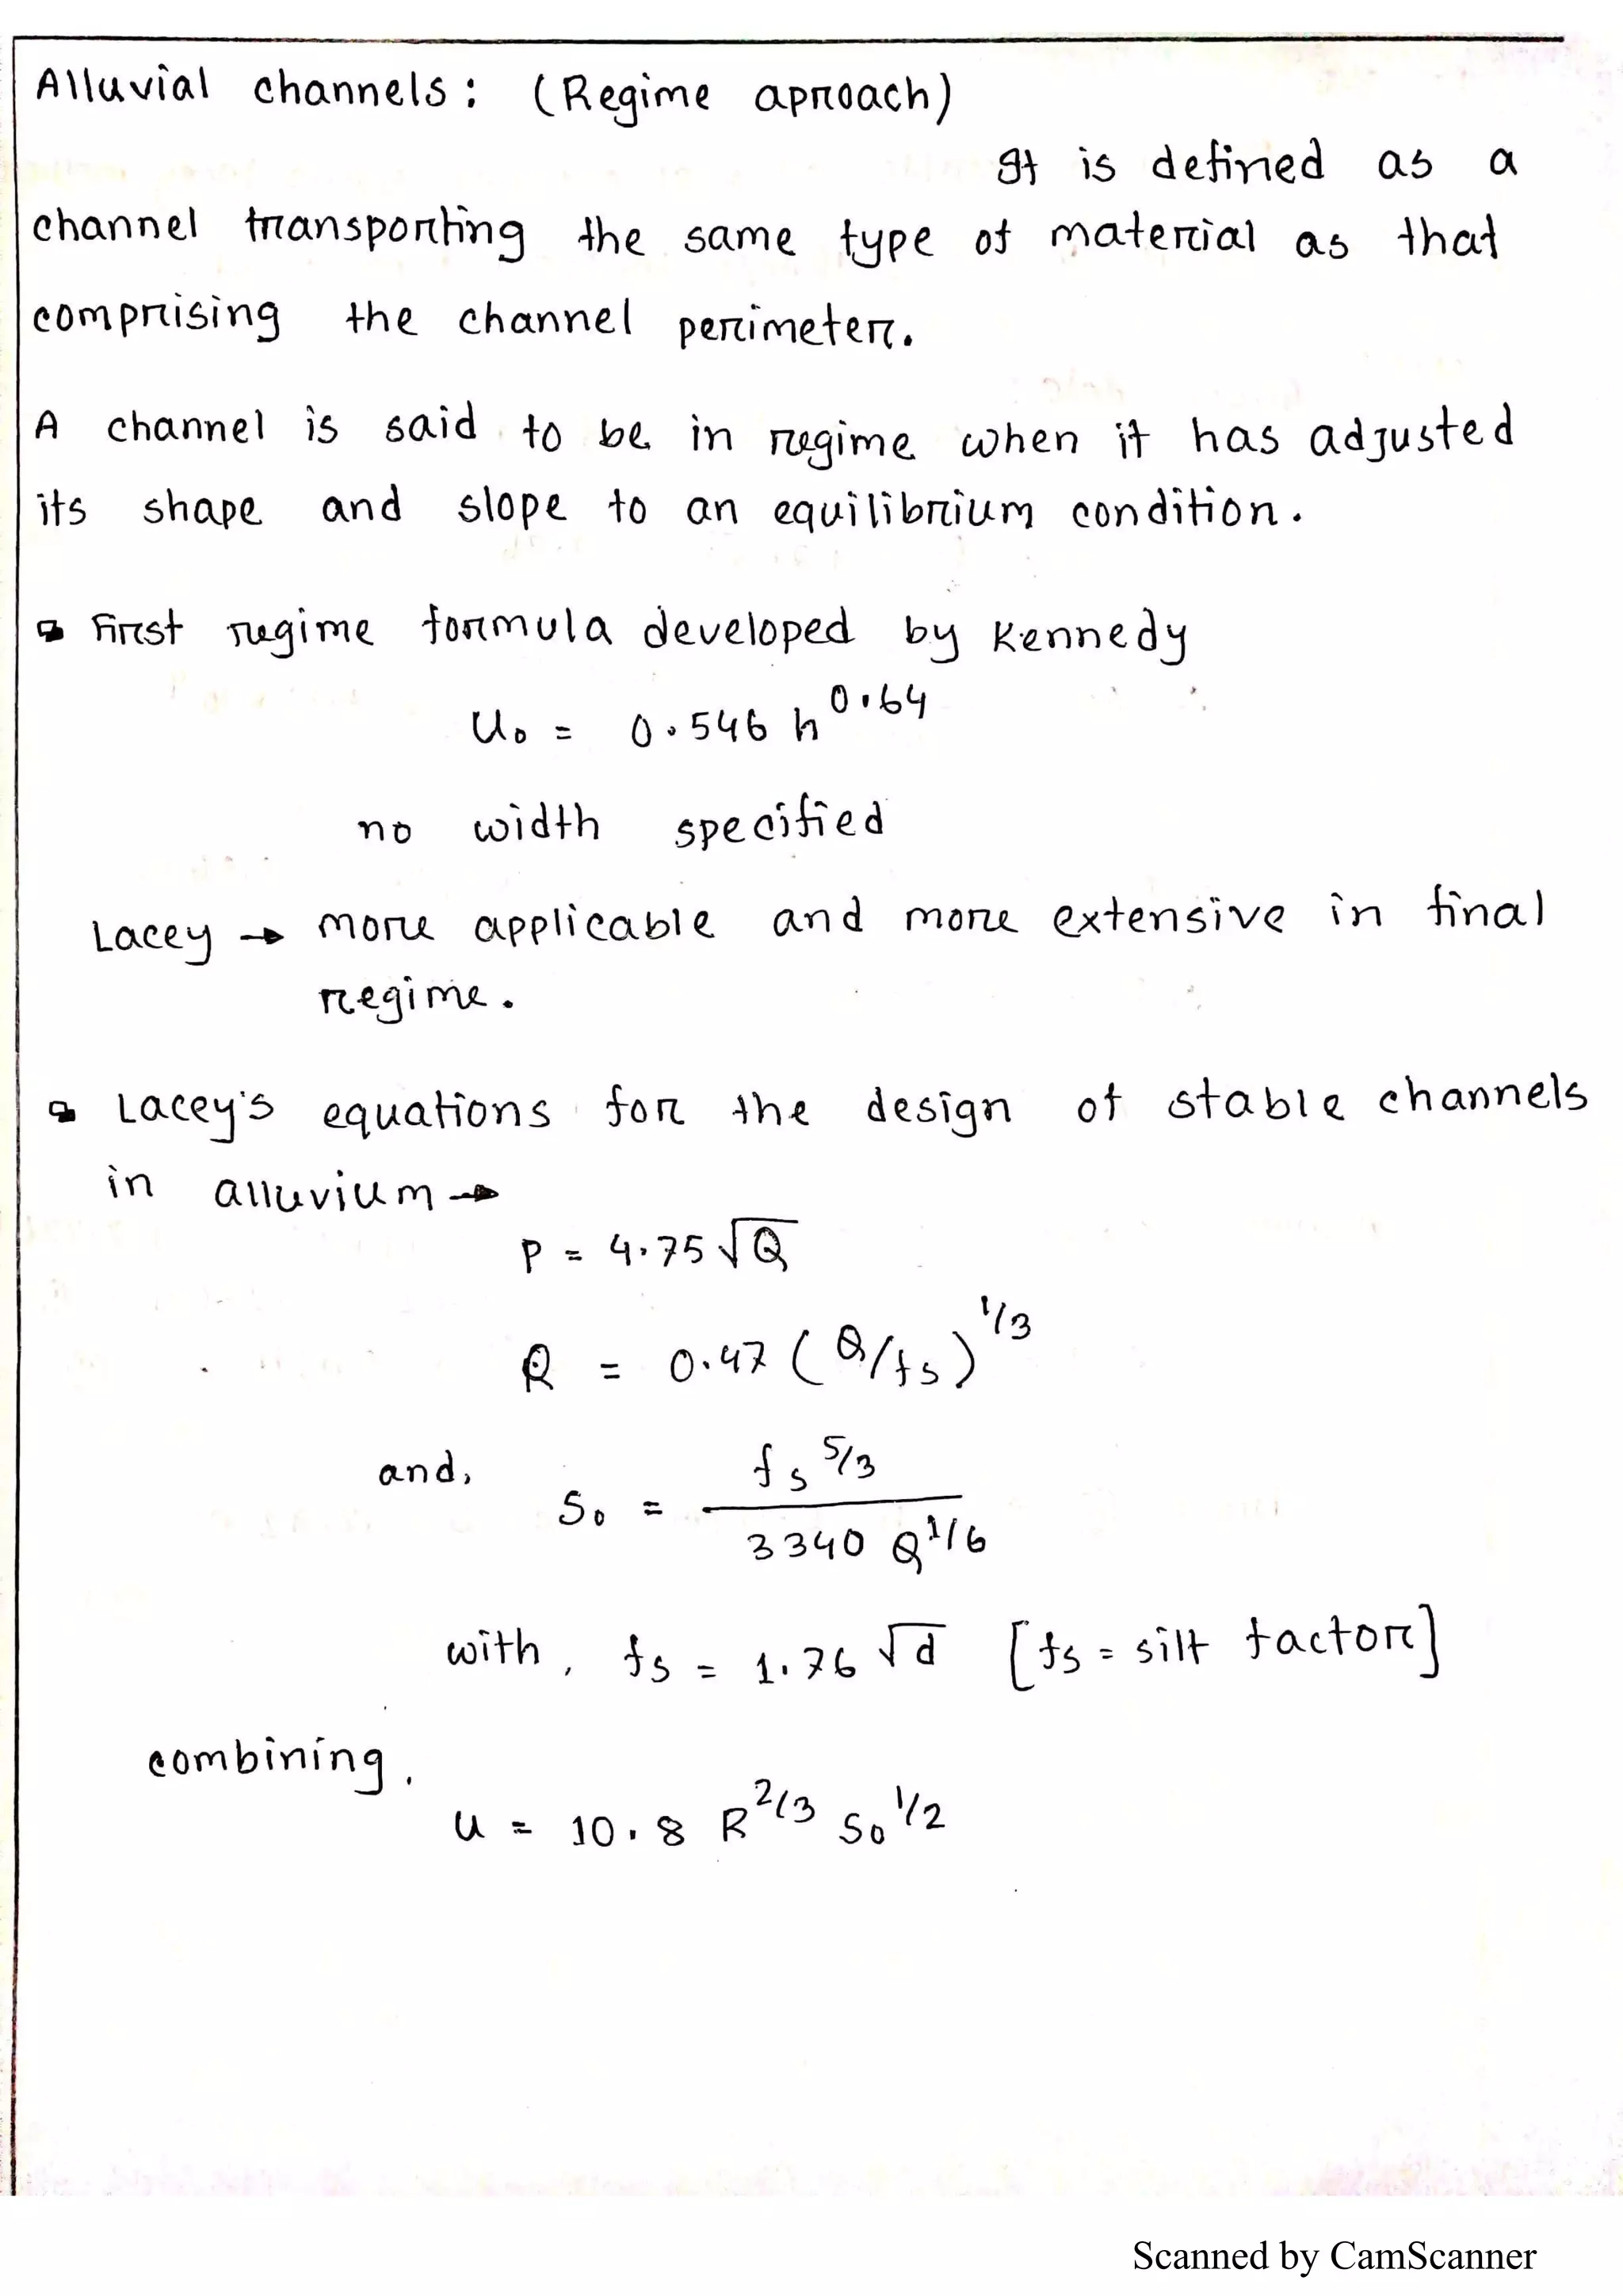 Alluvial channels: (Regime aproach)
It is defined as a
channel transporting the same type of material as that
comprising the channel perimeter.
A channel is said to be in regime when it has adjusted
its shape and slope to an equilibrium condition.
First regime formula developed by Kennedy
U₀ = 0.546 h^0.64
no width specified
Lacey → more applicable and more extensive in final
regime.
Lacey's equations for the design of stable channels
in alluvium →
P = 4.75 √Q
R = 0.47 (Q/fs)^1/3
and, S₀ = fs^5/3 / 3340 Q^1/6
with, fs = 1.76 √d [fs = silt factor]
combining,
U = 10.8 R^2/3 S₀^1/2
Scanned by CamScanner